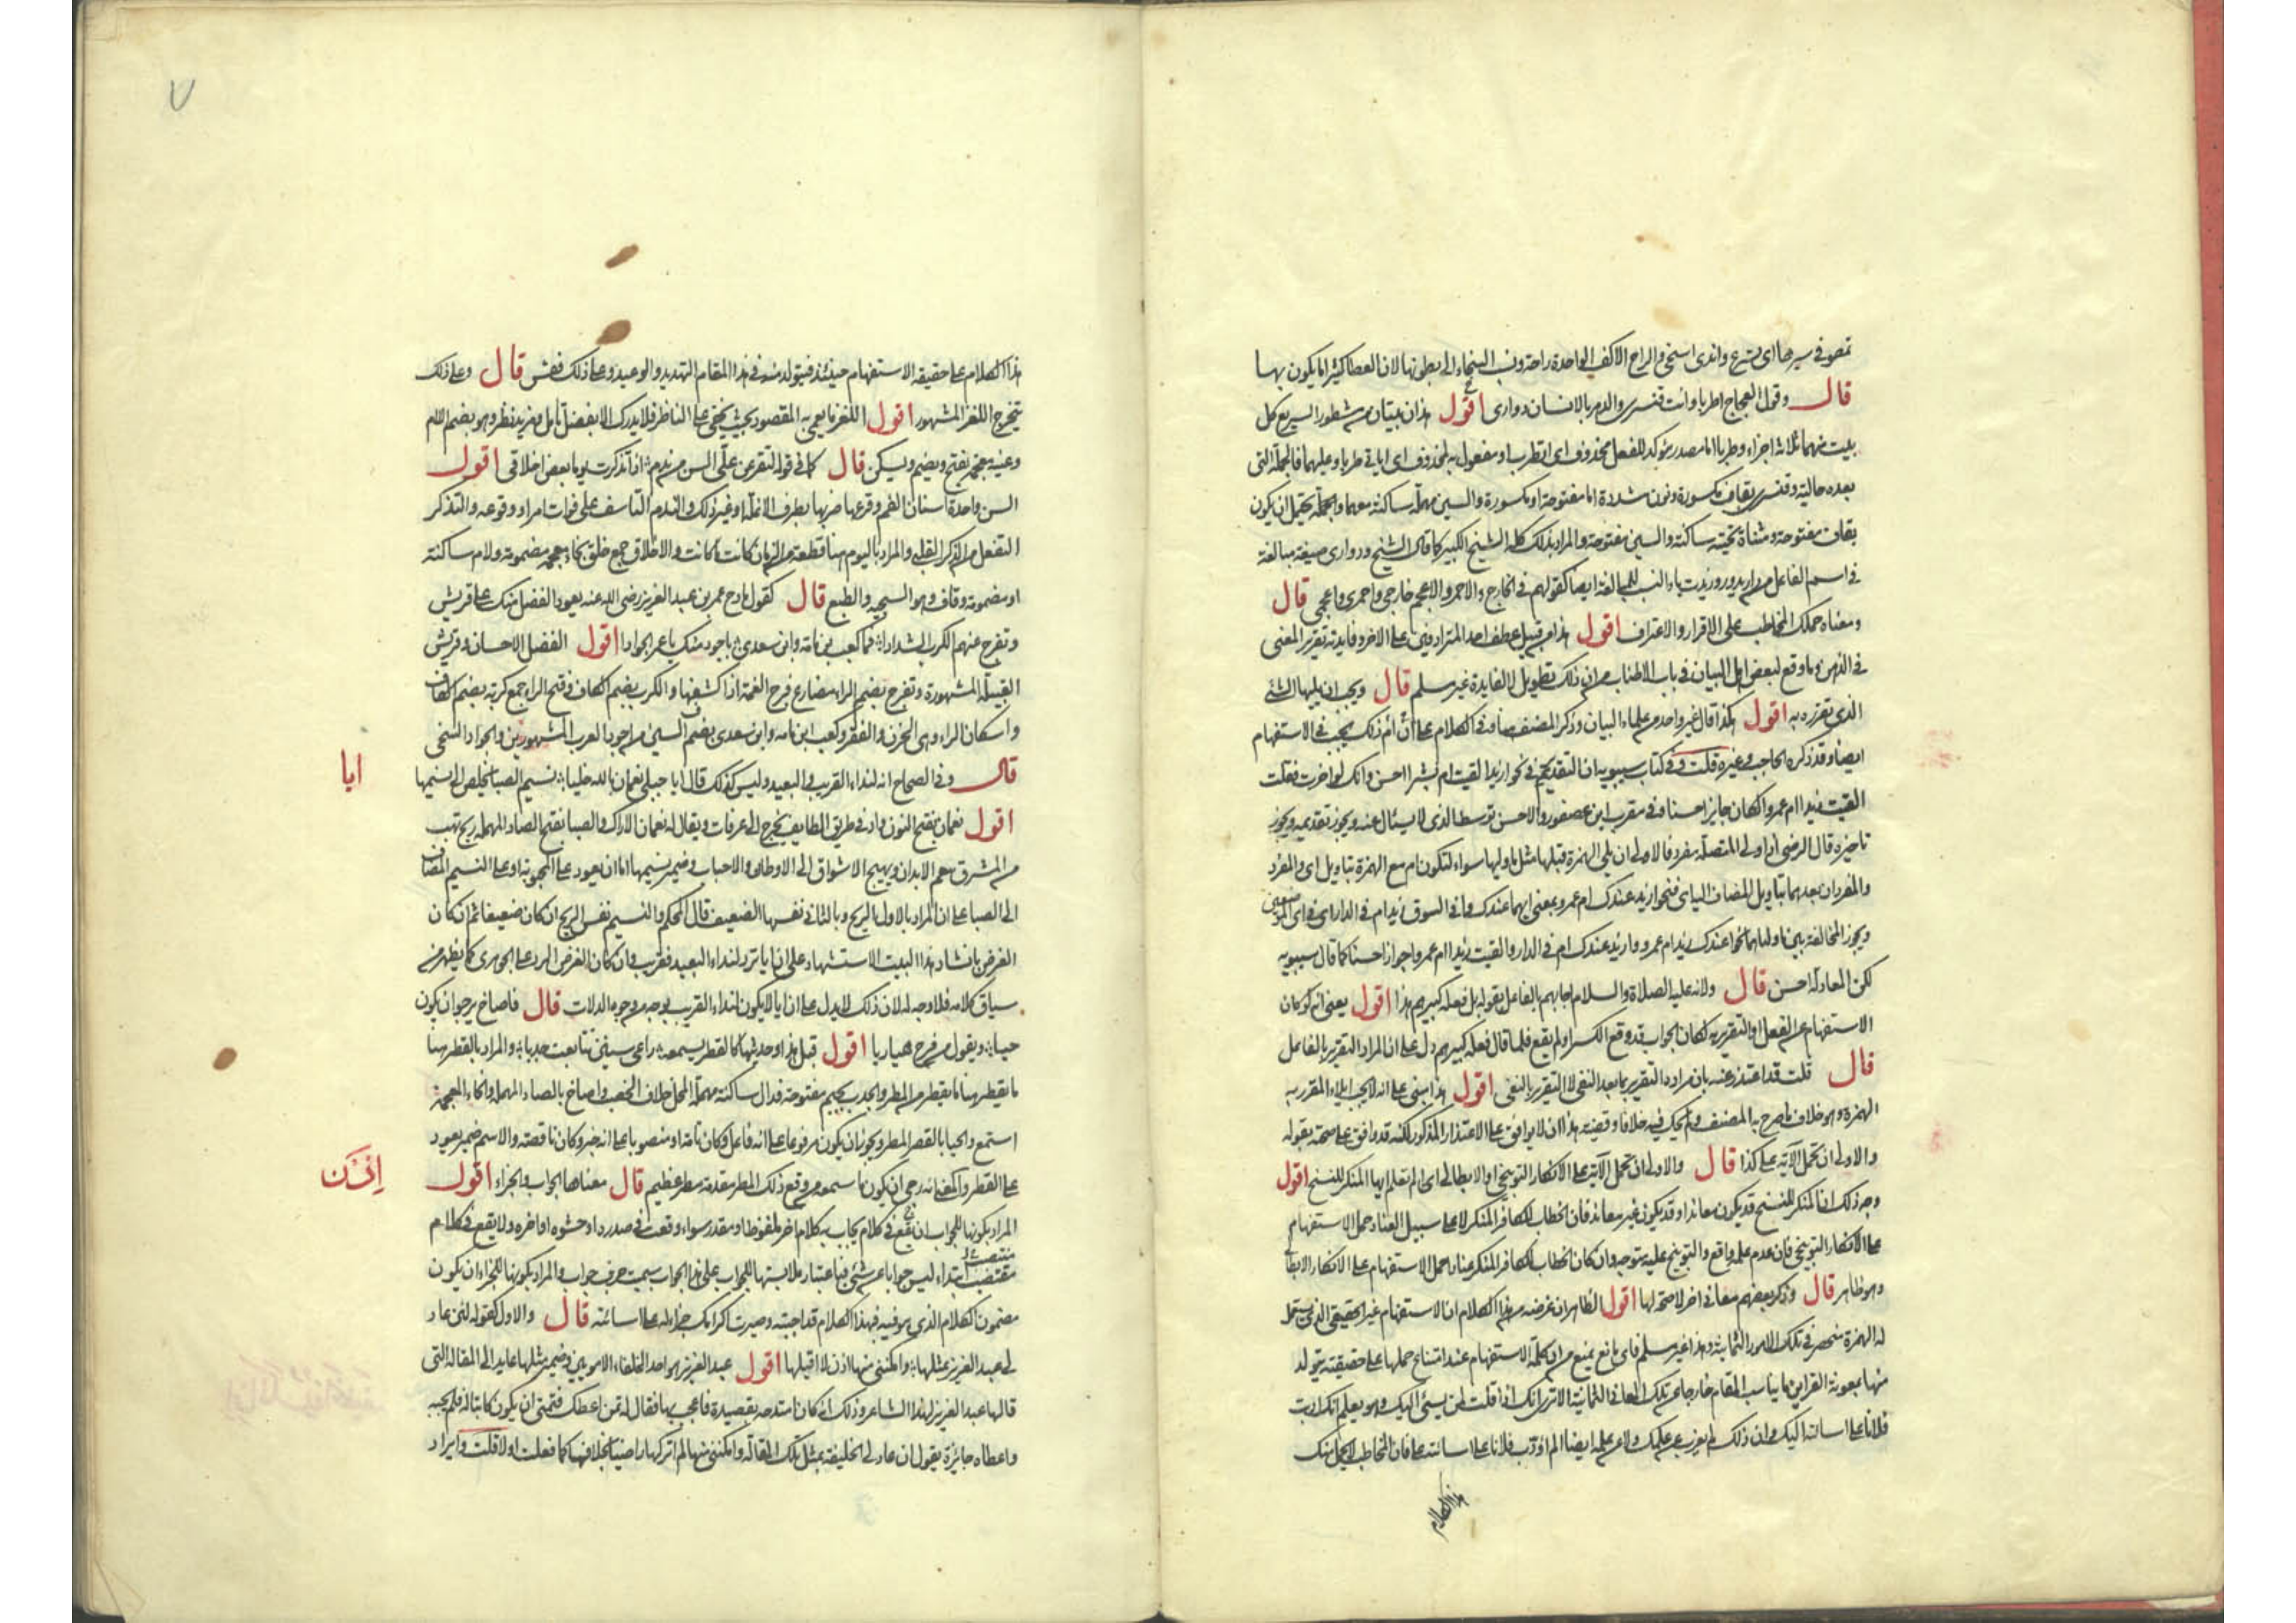 تمعو في سيرها اي تسرع واندى اسخى والراح الاكف الواحدة راحة ونسب السخاء الى بطونها لان العطا كثيرا ما يكون بها
قال وقول العجاج اطربا وانت قنسري والدهر بالانسان دواري اقول هذان بيتان من مشطور السريع كل
بيت منهما ثلاثة اجزاء وطربا اما مصدر مؤكد للفعل محذوف اي اتطرب او مفعول به لمحذوف اي اتاتي طربا وعليهما فالجملة التي
بعده حالية وقنسري بقاف مكسورة ونون مشددة اما مفتوحة او مكسورة والسين مهملة ساكنة معهما والجملة يحتمل ان يكون
بقاف مفتوحة ومثناة تحتية ساكنة والسين مفتوحة والمراد بذلك كله الشيخ الكبير كما قال الشيخ ودواري صيغة مبالغة
في اسم الفاعل من دار يدور وزيدت ياء النسب للمبالغة ايضا كقولهم في الخارج والاحمر والاعجم خارجي واحمري واعجمي قال
ومعناه حملك المخاطب على الاقرار والاعتراف اقول هذا من قبيل عطف احد المترادفين على الاخر وفايدته تقرير المعنى
في الذهن وما وقع لبعض اهل البيان في باب الاطناب من ان ذلك تطويل لا لفايدة غير مسلم قال ويجب ان يليها الشئ
الذي تقرره به اقول هكذا قال غير واحد من علماء البيان وذكر المصنف هنا وفي الكلام على أن أم ذلك يجب في الاستفهام
ايضا وقد ذكره الحاجب وغيره قلت وفي كتاب سيبويه ان التقديم في نحو ازيدا لقيت ام بشرا احسن وانك لو اخرت فقلت
القيت زيدا ام عمروا لكان جايزا حسنا وفي مقرب ابن عصفور والاحسن توسط الذي لا يسئال عنه ويجوز تقديمه ويجوز
تاخيره قال الرضي اذا ولي المتصلة مفرد فالاولى ان يلي الهمزة قبلها مثل ما وليها سواء لتكون ام مع الهمزة بتاويل اي والمفرد
والمفردان بعدهما بتاويل المضاف اليه اي فنحو ازيد عندك ام عمرو بمعنى ايهما عندك وافي السوق زيد ام في الدار اي في اي الموضعين
ويجوز المخالفة بين ما ولياهما نحو اعندك زيد ام عمرو وازيد عندك ام في الدار والقيت زيدا ام عمروا جوازا حسنا كما قال سيبويه
لكن المعادلة احسن قال ولانه عليه الصلاة والسلام اجابهم بالفاعل بقوله بل فعله كبيرهم هذا اقول يعني انه لو كان
الاستفهام عن الفعل او التقرير به لكان الجواب قد وقع الكسر او لم يقع فلما قال فعله كبيرهم دل على ان المراد التقرير بالفاعل
قال قلت قد اعتذر عنه بان مراده التقرير بما بعد النفي لا التقرير بالنفي اقول هذا مبني على انه لا يجب ايلاء المقرر به
الهمزة وهو خلاف ما صرح به المصنف ولم يحك فيه خلافا وقضيته هذا ان لا يوافق على الاعتذار المذكور لكنه قد وافق على صحته بقوله
والاولى ان تحمل الآية على كذا قال والاولى ان تحمل الآية على الانكار التوبيخي او الابطالي اي الم تعلم ايها المنكر للنسخ اقول
وجه ذلك ان المنكر للنسخ قد يكون معاندا وقد يكون غير معاند فان الخطاب للكافر المنكر لا على سبيل العناد حمل الاستفهام
على الانكار التوبيخي فان عدم علمه واقع والتوبيخ عليه متوجه وان كان الخطاب للكافر المنكر عنادا حمل الاستفهام على الانكار الابطالي
وهو ظاهر قال وذكر بعضهم معاني اخر لا صحة لها اقول الظاهر ان غرضه من هذا الكلام ان الاستفهام غير الحقيقي الذي يستعمل
له الهمزة منحصر في تلك الامور الثمانية وهذا غير مسلم فاي مانع يمنع من ان كلمة الاستفهام عند امتناع حملها على حقيقته يتولد
منها بمعونة القراين ما يناسب المقام خارجا عن تلك المعاني الثمانية الا ترى انك اذا قلت لمن يسئ اليك وهو يعلم انك ادبت
فلانا على اسائته اليك وان ذلك لم يعزب عن علمك ولا عن علمه ايضا الم اؤدب فلانا على اسائته على فان المخاطب لا يحمل منك
هذا الكلام
٧
هذا الكلام على حقيقة الاستفهام حينئذ فيتولد منه في هذا المقام التهديد والوعيد وعلى ذلك فقس قال وعلى ذلك
يتخرج اللغز المشهور اقول اللغز ما يعمى به المقصود بحيث يخفى على الناظر فلا يدرك الا بفضل تامل ومزيد نظر وهو بضم اللام
وغينه معجمة بفتح ويضم ويسكن قال كما في قوله لتقرعن علي السن من ندم اذا تذكرت يوما بعض اخلاقي اقول
السن واحدة اسنان الفم وقرعها ضربها بطرف الانملة او غير ذلك والندم التاسف على فوات امر او وقوعه والتذكر
التفعل من الذكر القلبي والمراد باليوم هنا قطعة من الزمان كانت ما كانت والاخلاق جمع خلق بخاء معجمة مضمومة ولام ساكنة
او مضمومة وقاف وهو السجية والطبع قال كقول مادح عمر بن عبد العزيز رضي الله عنه يعود الفضل منك على قريش
وتفرج عنهم الكرب الشدادا فما كعب بن مامة وابن سعدى باجود منك يا عمر الجوادا اقول الفضل الاحسان وقريش
القبيلة المشهورة وتفرج بضم الراء مضارع فرج الغمة اذا كشفها والكرب بضم الكاف وفتح الراء جمع كربة بضم الكاف
واسكان الراء وهي الحزن والفقر وكعب ابن مامه وابن سعدى بضم السين من اجود العرب المشهورين والجواد السخى
ايا
قال وفي الصحاح انه لنداء القريب والبعيد وليس كذلك قال ايا جبلي نعمان بالله خليا نسيم الصبا يخلص الى نسيمها
اقول نعمان بفتح النون واد في طريق الطايف يخرج الى عرفات ويقال له نعمان الاراك والصبا بفتح الصاد المهملة ريح تهب
من المشرق تنعم الابدان ويهيج الاشواق الى الاوطان والاحباب وضمير نسيمها اما ان يعود على المحبوبة او على النسيم المضاف
الى الصبا على ان المراد بالاول الريح وبالثاني نفسها الضعيف قال المحكم والنسيم نفس الريح ان كان ضعيفا ثم ان كان
الغرض بانشاد هذا البيت الاستشهاد على ان ايا ترد لنداء البعيد فقريب وان كان الغرض الرد على الجوهري كما يظهر من
سياق كلامه فلا وجه له لان ذلك لا يدل على ان ايا لا يكون لنداء القريب بوجه من وجوه الدلات قال فاصاخ يرجو ان يكون
حيا ويقول من فرح هيا ربا اقول قبل هذا وحديثها كالقطر يسمعه راعي سنين تتابعت جدبا والمراد بالقطر هنا
ما يقطر هنا ما يقطر من المطر والجدب بجيم مفتوحة فدال ساكنة مهملة المحل خلاف الخصب واصاخ بالصاد المهملة والخاء المعجمة
استمع والحيا بالقصر المطر ويجوز ان يكون مرفوعا على انه فاعل وكان تامة او منصوبا على انه خبر وكان ناقصة والاسم ضمير يعود
إذن
على القطر والمعنى انه رجى ان يكون ما سمعه من وقع ذلك المطر مقدمة مطر عظيم قال معناها الجواب والجزاء اقول
المراد بكونها للجواب ان تقع في كلام يجاب به كلام اخر ملفوظ او مقدر سواء وقعت في صدره او حشوه او اخره ولا يقع في كلام
مقتضب ابتداء ليس جوابا عن شئ فباعتبار ملابستها للجواب على هذا الجواب سميت حرف جواب والمراد بكونها للجزاء ان يكون
مضمون الكلام الذي هو فيه فهذا الكلام قد اجبته وصيرت اكرامك جزاء له على اسائته قال والاول كقوله لئن عاد
لي عبد العزيز بمثلها وامكنني منها اذن لا اقيلها اقول عبد العزيز هو احد الخلفاء الامويين وضمير مثلها عايد الى المقالة التي
قالها عبد العزيز لهذا الشاعر وذلك انه كان امتدحه بقصيدة فاعجب بها فقال له تمن اعطك فتمنى ان يكون كاتبا له فلم يجبه
واعطاه جائزة يقول ان عاد لي الخليفة بمثل تلك المقالة وامكنني منها لم اتركها راضيا بخلافها كما فعلت اولا قلت وايراد